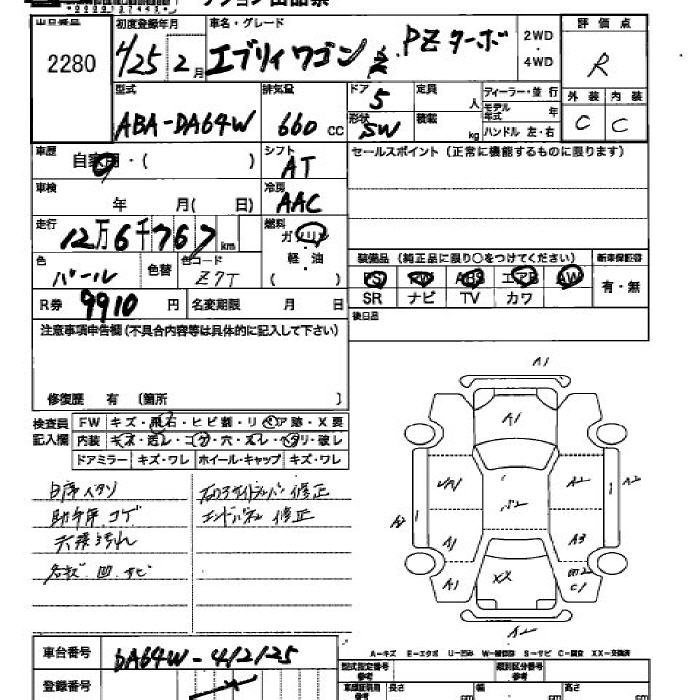 2280
初度登録年月
車名・グレード
2WD
4WD
評価点
25 2月
エブリィワゴン PZターボ
R
型式
排気量
ドア
定員
ディーラー・並行
外装 内装
ABA-DA64W
660 cc
5
人
モデル年式 年
C C
形状
SW
積載
kg
ハンドル 左・右
車歴
自家用・( )
シフト
AT
セールスポイント(正常に機能するものに限ります)
車検
年 月( 日)
冷房
AAC
走行
12万6千767 km
燃料
ガソリン
軽・油
( )
色
パール
色替
色コード
Z7T
装備品 (純正品に限り○をつけてください)
新車保証書
PS PW ABS エアB AW
有・無
SR ナビ TV カワ
R券 9910 円
名変期限 月 日
後日品
注意事項申告欄(不具合内容等は具体的に記入して下さい)
修復歴 有 〔箇所 〕
検査員記入欄
FW キズ・飛石・ヒビ割・リペア跡・X要
内装
ドアミラー キズ・ワレ ホイール・キャップ キズ・ワレ
助手席 コゲ
天張汚れ
修正
エンドパネル 修正
A1
A1
A2
A2
A1
A3
A1
XX
C1
A2
A-キズ E-エクボ U-凹み W-補修跡 S-サビ C-腐食 XX-交換済
車台番号
DA64W-412125
登録番号
型式指定番号 参考
類別区分番号 参考
長さ
幅
高さ
cm cm cm